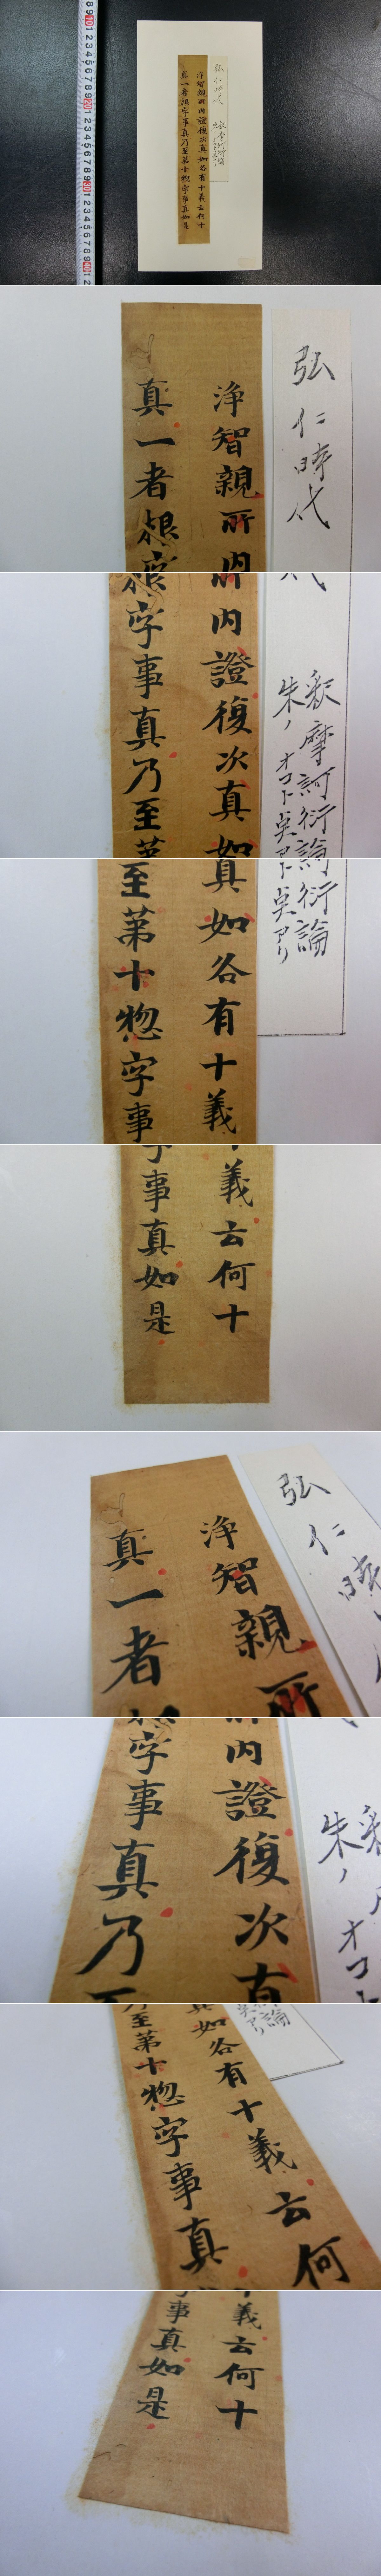 弘仁時代
釈摩訶衍論
朱ノオコト点アリ
浄智親所内證復次真如各有十義云何十
真一者根字事真乃至第十惣字事真如是